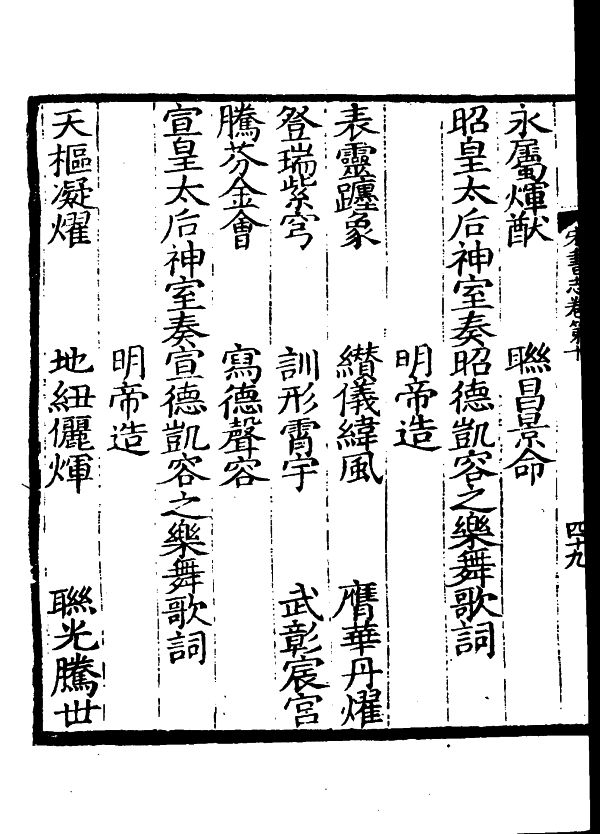 宋書志卷第十 四十九
永屬煇猷 聯昌景命
昭皇太后神室奏昭德凱容之樂舞歌詞
明帝造
表靈躔象 纘儀緯風 膺華丹燿
登瑞紫穹 訓形霄宇 武彰宸宮
騰芬金會 寫德聲容
宣皇太后神室奏宣德凱容之樂舞歌詞
明帝造
天樞凝燿 地紐儷煇 聯光騰世